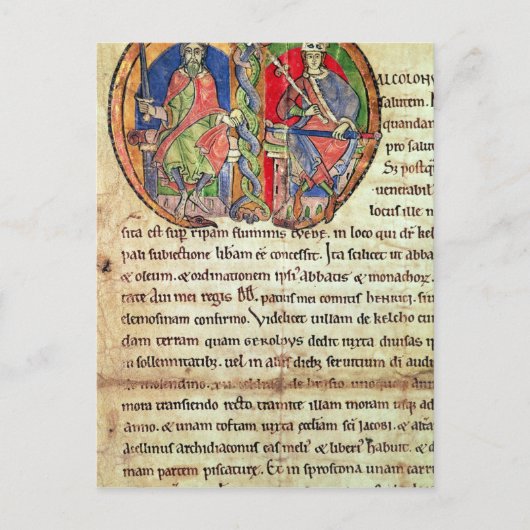 ALCOLONVS
salutem.
quandam
pro salute
Sz postq̄
venerabil
locus ille n
sita est sup̄ ripam fluminis TVEDE. in loco qui dr̄ kel
pali subiectione libam ēē concessit. Ita scilicet ut abba
& oleum. & ordinationem ipsi' abbatis & monachoꝝ.
tate Aui mei regis DD. patris mei comitis henrici, sui
elemosinam confirmo. Videlicet uillam de kelcho cum
dam terram quam GEROLDVS dedit iuxta diuisas
in sollennitatibꝫ. uel in aliis dieb; seruitium di audi
de molendino. de uno quoq; anno
mora transeundo recto tramite illam moram usq; ad
anno. & unam toftam iuxta eccliam sci Iacobi. &
Ascellinus archidiaconus eas meli' & liberi' habuit. & de
mam partem piscature. Et in sprostona unam carru